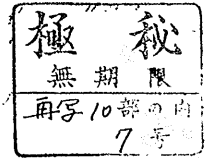 極秘
無期限
再写10部の内
7号